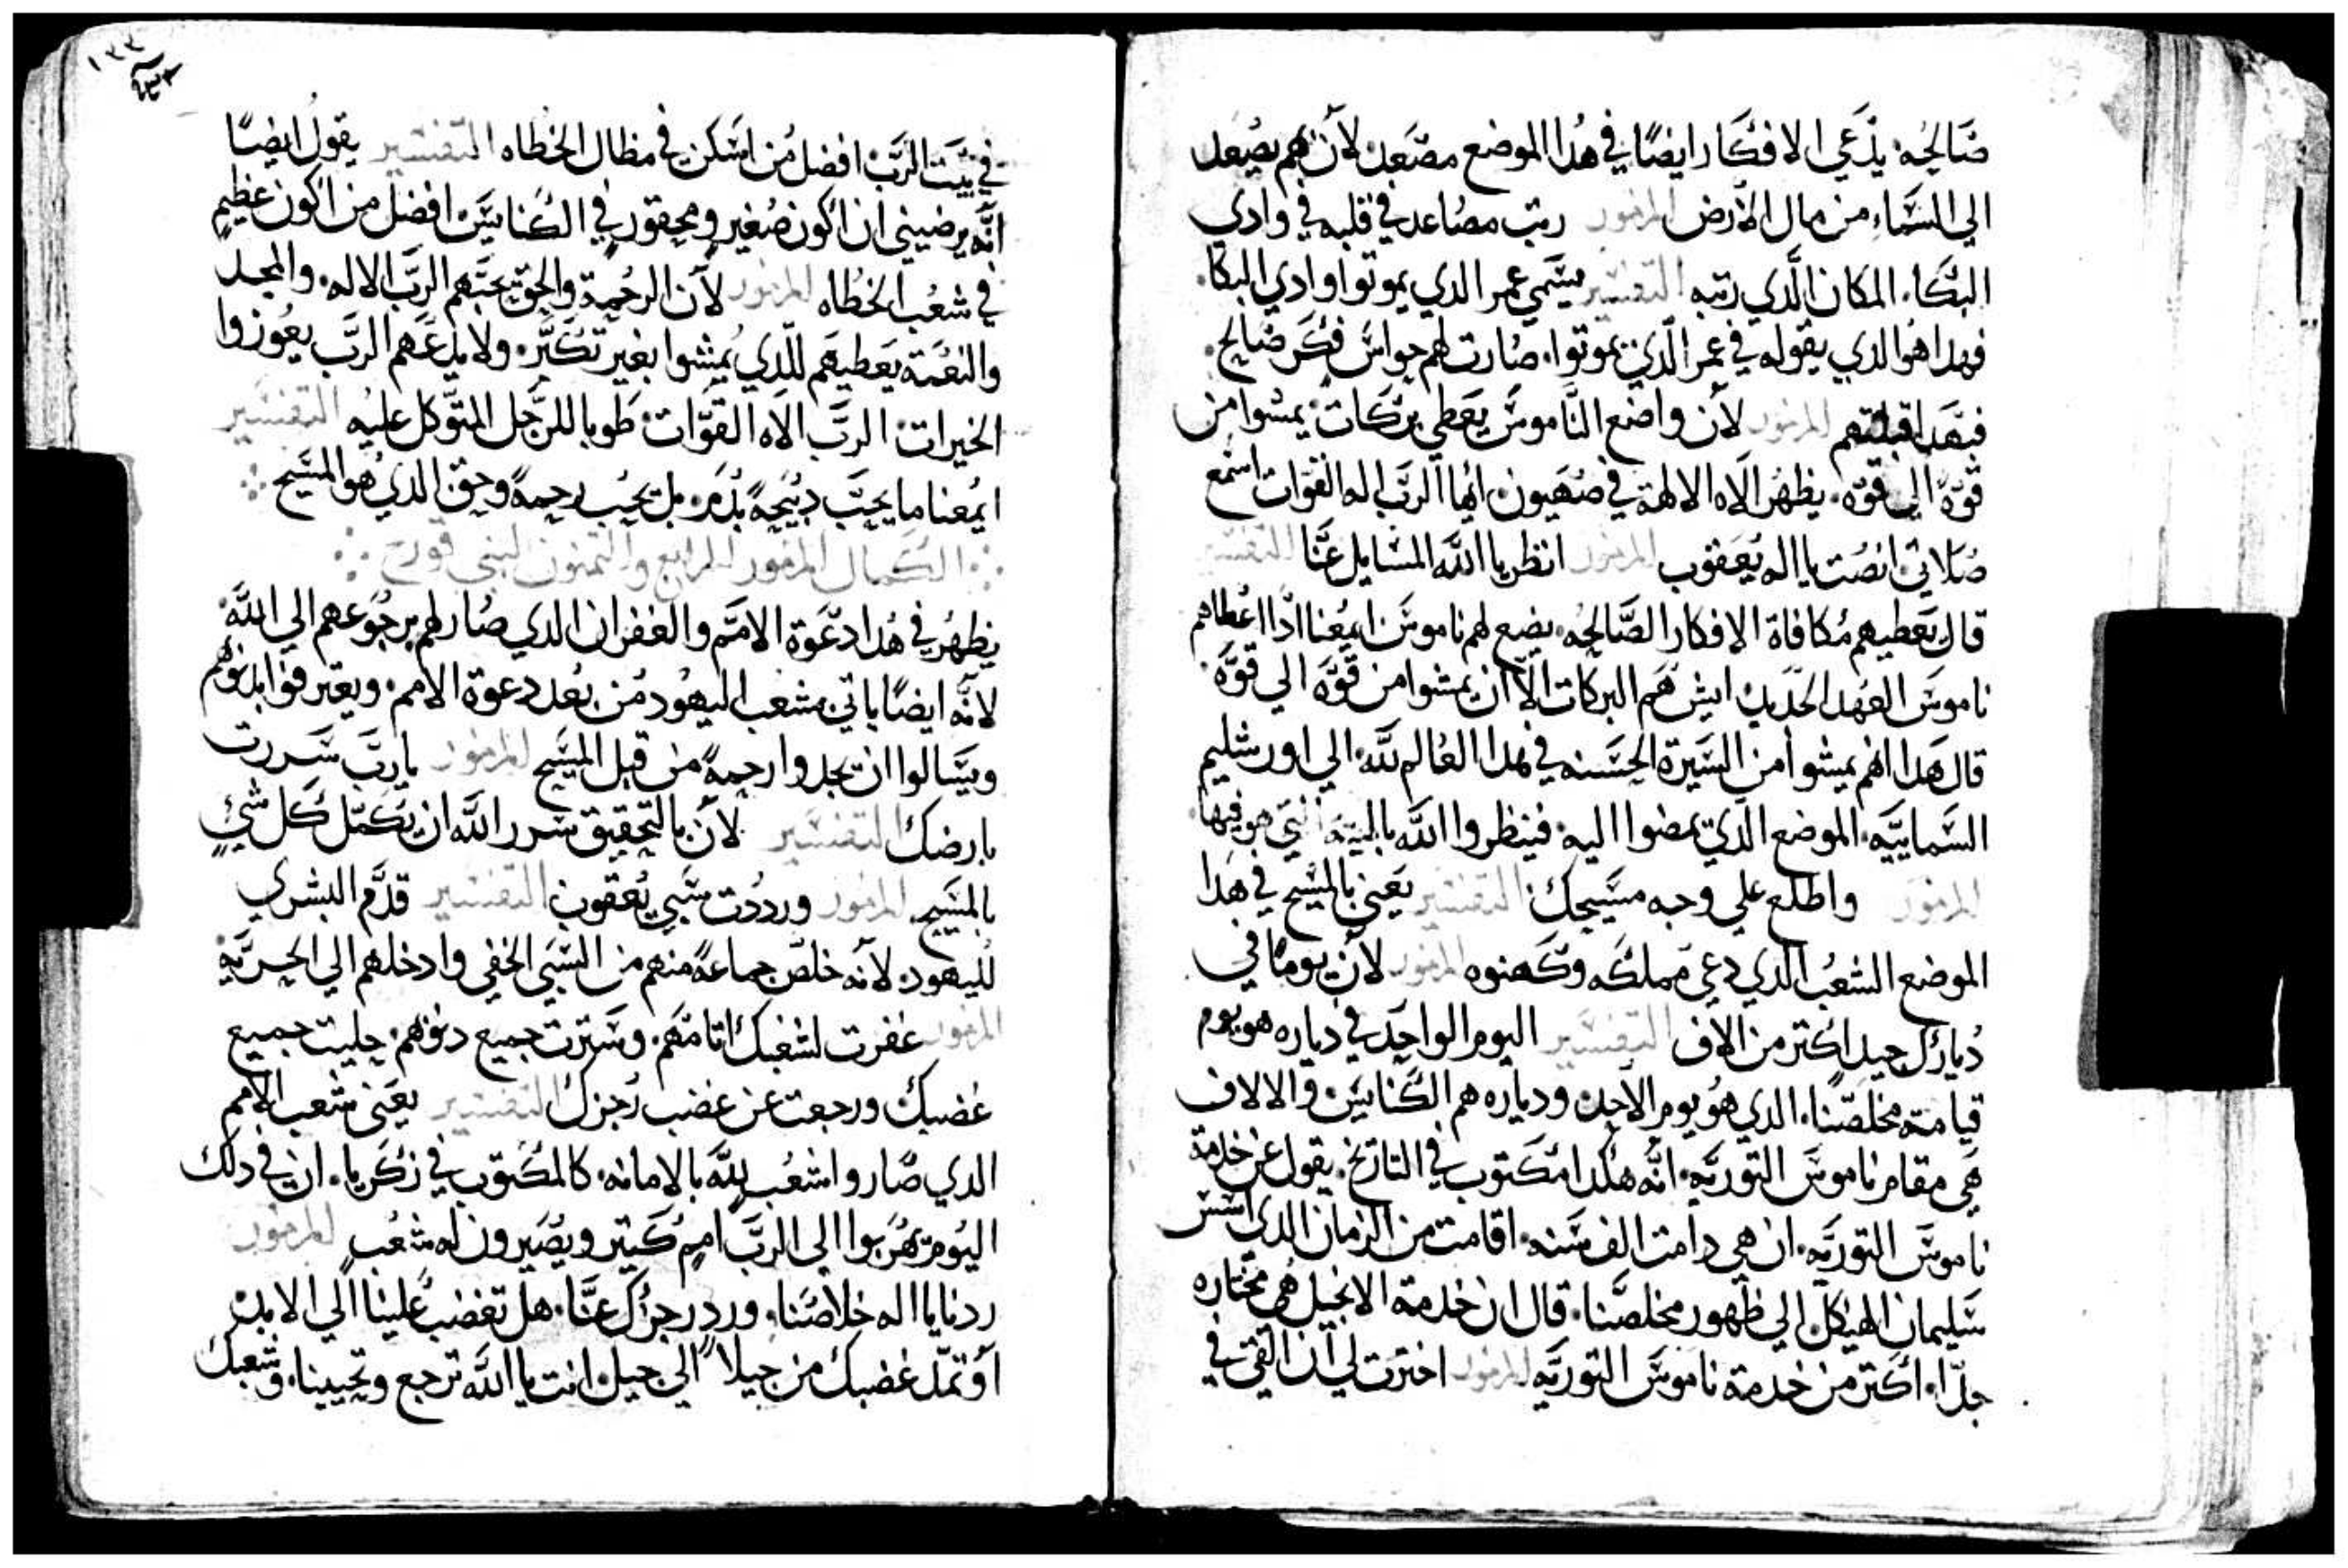 صَالحُه. يدَعي الافكار ايضًا في هُدا الموضع مصَعد. لأن بهم يصُعد
الي السَّماء من مال الأرض المزمور رتب مصاعد في قلبه في وادي
البُكا. المكان الَّدي رتبه التفسَير يسَمي عمر الدي يموتوا وادي البكا.
فهدا هو الدي يقوله في عمر الَّدي يموتوا. صُارت لهم حواسَ فكر صَالح.
المزمور لأن واضع النَّاموسَ يعَطي بركات. يمشوا من
قوّةً الي قوّه. يظهُر الاه الالهة في صُهَيون. ايُها الرَّب اله القوّات استمع
صُلاتي. انصُت يا اله يعَقوب المزمور انظر يا اللَّه المسَايل عنَّا التفسَير
قال يَعَطيهم مُكافاة الافكار الصَّالحُه. يضع لهم ناموسَ ايمُعنا ادا اعُطاهم
ناموسَ العَهد الحَديد. ايش هَم البركات الّا ان يمشوا من قوَّه الي قوَّه.
قال هَدا انهم يمشوا من السَيرة الحسَنه في هدا العُالم للَّه. الي اورشليم
السَّماييَّه. الموضع الَّدي يمضوا اليه. فينظروا اللَّه بالهية التي هو فيها.
المزمور واطلع علي وجه مسَيحك التفسَير يعَني بالمسَيح في هَدا
الموضع الشعُب الَّدي دعي مملكَه وكَهنوه المزمور لأن يومًا في
دُيارك جيد اكتر من الاف التفسَير اليوم الواحَد في دياره هو يوم
قيامة مخلصَّنا. الدي هوُ يوم الاحد. ودياره هم الكَنايسَ. والالاف
هي مقام ناموسَ التوريَّه. انَّه هكُدا مكتوب في التاريخ. يقول عن خدمة
ناموسَ التوريَّه. ان هي دامت الف سَنه. اقامت من الزمان الدي اسَسَ
سَليمان الهيَكل الي ظهور مخلصَّنا. قال ان خدمة الانجيل هُي مختاره
جدّا. اكَتر من خدمة ناموسَ التوريَّه المزمور اخترت لي ان القي في
١٣٣
في بيَت الرَّب افضل من اسَكن في مظال الخطاه التفسَير يقول ايضًا
انَّه يرضيني ان اكون صُغير ومحقور في الكُنايسَ افضل من اكون عظيم
في شعُب الخُطاه المزمور لأن الرحُمة والحق يحبَّهم الرَّب الاله. والمجد
والنعُمَة يَعطيهَم للَّدي يُمشوا بغير تَكَبَّر. ولا يدعَهم الرَّب يعُوزوا
الخيرات. الرَّب الاه القوّات. طوبا للرَّجل المتوَّكل عليُه التفسَير
ايمُعنا ما يحبَّ دبُيحهً بُدم. بل يحُب رحمةً وحق الدي هو المسَيح
الكَمال المزمور الرابع والتمنون لبني قورح
يظهُر في هُدا دعَوة الامَم والغفران الدي صُار لهم برجُوعهم الي اللَّه.
لانَّه ايضًا ياتي شعب اليهُود من بُعد دعوة الامم. ويعترفوا بدنوبُهم
ويسَالوا ان يجدوا رحمةً من قبل المسَيح المزمور يا ربَّ سَررت
بارضك التفسَير لأن بالتحَقيق سَرر اللَّه ان يَكمّل كَل شيٍ
بالمسَيح المزمور ورددُت سَبي يُعقوب التفسَير قدَّم البشري
لليهود. لأنه خلصَ جماعةً منهم من السَبي الخفي وادخلهم الي الحريَّه
المزمور غفرت لشعَبك اتامَهم. وسَترت جميع دنوبهم. حليت جميع
غضبك ورجعت عن غضب رُجزك التفسَير يعَني شعب الامم
الدي صُاروا شعُب للَّه بالامانه. كالمكُتوب في زكَريا. ان في دلك
اليُوم يهُربوا الي الرَّب امم كَتير ويصُيَرون له شعُب المزمور
ردنا يا اله خلاصُنا. وردد رجزُك عنَّا. هل تغضب علَينا الي الابد.
أو تمدّ غضبك من جيلًا الي جيل. انت يا اللَّه ترجع وتحيينا. وشعبك